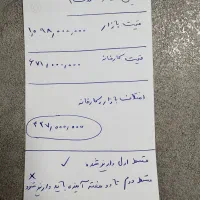 قیمت بازار
۱,۰۹۸,۰۰۰,۰۰۰
قیمت کارخانه
۶۷۱,۰۰۰,۰۰۰
اختلاف بازار و کارخانه
۴۲۷,۰۰۰,۰۰۰
قسط اول واریز شده ✓
قسط دوم تا ده هفته آینده باید واریز شود ×